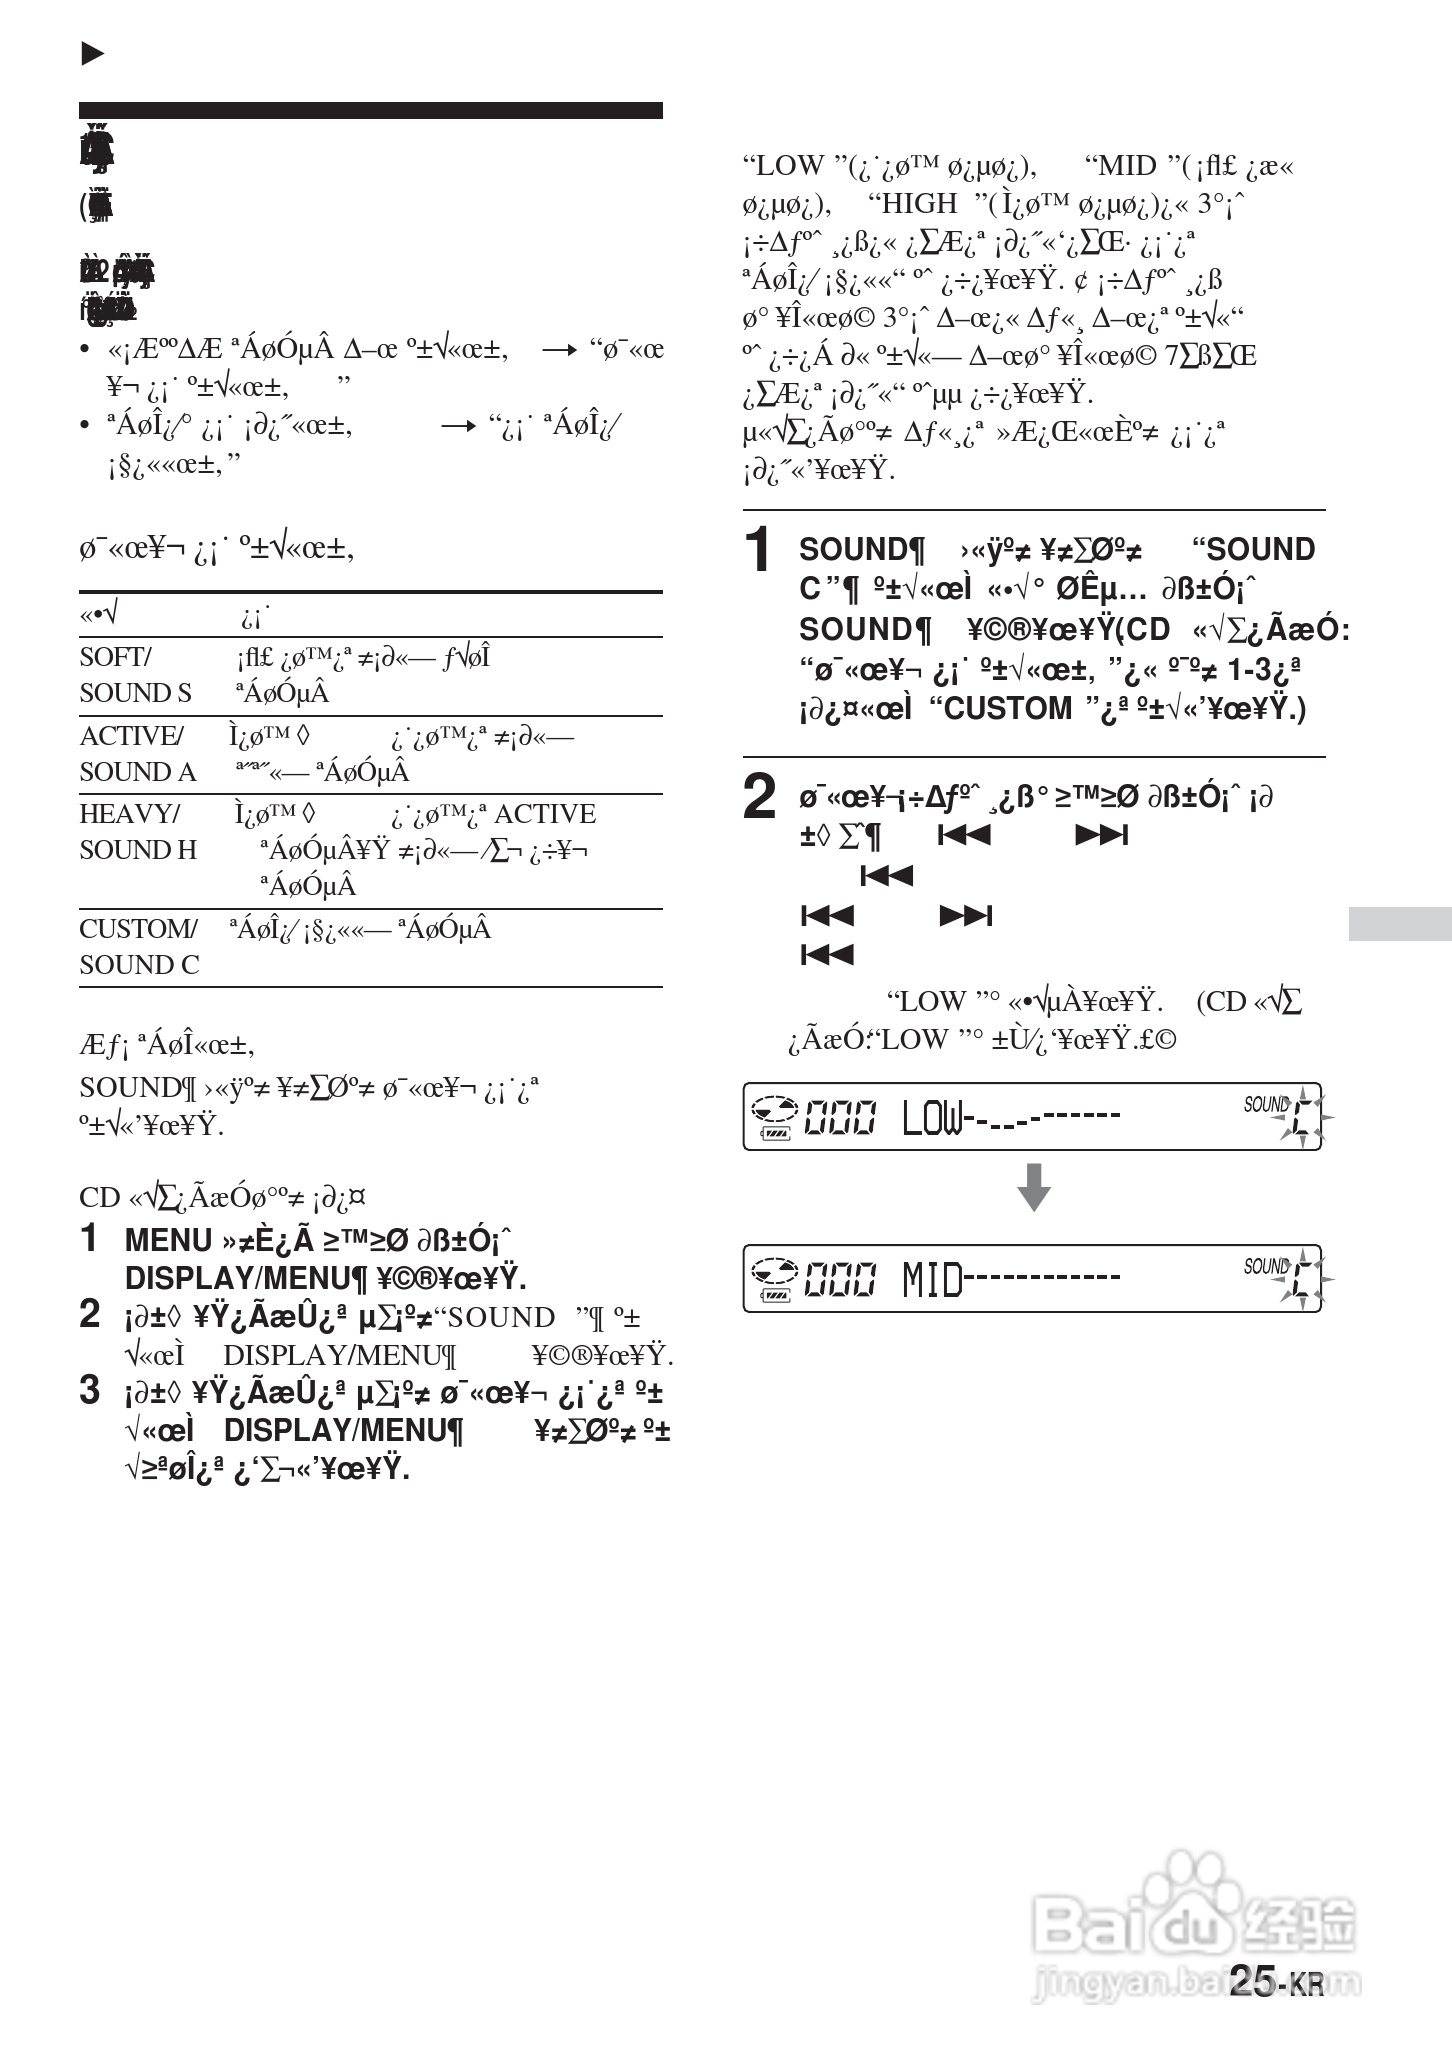 • «¡ÆººΔÆ ªÁøÓµÂ Δ–œ º±√«œ±, → “ø¯«œ
¥¬ ¿¡˙ º±√«œ±, ”
• ªÁøÎ¿⁄° ¿¡˙ ¡∂¿˝«œ±, → “¿¡˙ ªÁøÎ¿⁄
¡§¿««œ±, ”
ø¯«œ¥¬ ¿¡˙ º±√«œ±,
«•√ ¿¡˙
SOFT/ ¡ﬂ£ ¿ø™¿ª ≠¡∂«— ƒ√øÎ
SOUND S ªÁøÓµÂ
ACTIVE/ Ì¿ø™ ◊ ¿˙¿ø™¿ª ≠¡∂«—
SOUND A ª˝ª˝«— ªÁøÓµÂ
HEAVY/ Ì¿ø™ ◊ ¿˙¿ø™¿ª ACTIVE
SOUND H ªÁøÓµÂ¥Ÿ ≠¡∂«— ⁄∑¬ ¿÷¥¬
ªÁøÓµÂ
CUSTOM/ ªÁøÎ¿⁄ ¡§¿««— ªÁøÓµÂ
SOUND C
Æƒ¡ ªÁøÎ«œ±,
SOUND¶ ›«ÿº≠ ¥≠∑Øº≠ ø¯«œ¥¬ ¿¡˙¿ª
º±√«’¥œ¥Ÿ.
CD «√∑¿ÃæÓø°º≠ ¡∂¿¤
1 MENU »≠È¿Ã ≥™≥Ø ∂ß±Ó¡ˆ
DISPLAY/MENU¶ ¥©®¥œ¥Ÿ.
2 ¡∂±◊ ¥Ÿ¿ÃæÛ¿ª µ∑¡º≠“SOUND ”¶ º±
√«œÌ DISPLAY/MENU¶ ¥©®¥œ¥Ÿ.
3 ¡∂±◊ ¥Ÿ¿ÃæÛ¿ª µ∑¡º≠ ø¯«œ¥¬ ¿¡˙¿ª º±
√«œÌ DISPLAY/MENU¶ ¥≠∑Øº≠ º±
√≥ªøÎ¿ª ¿‘∑¬«’¥œ¥Ÿ.
“LOW ”(¿˙¿ø™ ø¿µø¿), “MID ”(¡ﬂ£ ¿æ«
ø¿µø¿), “HIGH ”(Ì¿ø™ ø¿µø¿)¿« 3°¡ˆ
¡÷Δƒºˆ ¸¿ß¿« ¿∑Æ¿ª ¡∂¿˝«‘¿∑Œ· ¿¡˙¿ª
ªÁøÎ¿⁄ ¡§¿««“ ºˆ ¿÷¿¥œ¥Ÿ. ¢ ¡÷Δƒºˆ ¸¿ß
ø° ¥Î«œø© 3°¡ˆ Δ–œ¿« Δƒ«¸ Δ–œ¿ª º±√«“
ºˆ ¿÷¿Á ∂« º±√«— Δ–œø° ¥Î«œø© 7∑ß∑Œ
¿∑Æ¿ª ¡∂¿˝«“ ºˆµµ ¿÷¿¥œ¥Ÿ.
µ«√∑¿Ãø°º≠ Δƒ«¸¿ª »Æ¿Œ«œÈº≠ ¿¡˙¿ª
¡∂¿˝«’¥œ¥Ÿ.
1 SOUND¶ ›«ÿº≠ ¥≠∑Øº≠ “SOUND
C ”¶ º±√«œÌ «•√° ØÊµ… ∂ß±Ó¡ˆ
SOUND¶ ¥©®¥œ¥Ÿ.(CD «√∑¿ÃæÓ:
“ø¯«œ¥¬ ¿¡˙ º±√«œ±, ”¿« º¯º≠ 1-3¿ª
¡∂¿¤«œÌ “CUSTOM ”¿ª º±√«’¥œ¥Ÿ.)
2 ø¯«œ¥¬¡÷Δƒºˆ ¸¿ß° ≥™≥Ø ∂ß±Ó¡ˆ ¡∂
±◊ ∑ˆ¶
“LOW ”° «•√µÀ¥œ¥Ÿ. (CD «√∑
¿ÃæÓ:“LOW ”° ±Ù⁄¿‘¥œ¥Ÿ.£©
000 LOW SOUND C
000 MID SOUND C
Bai du 经验
jingyan.baidu.com
25-KR